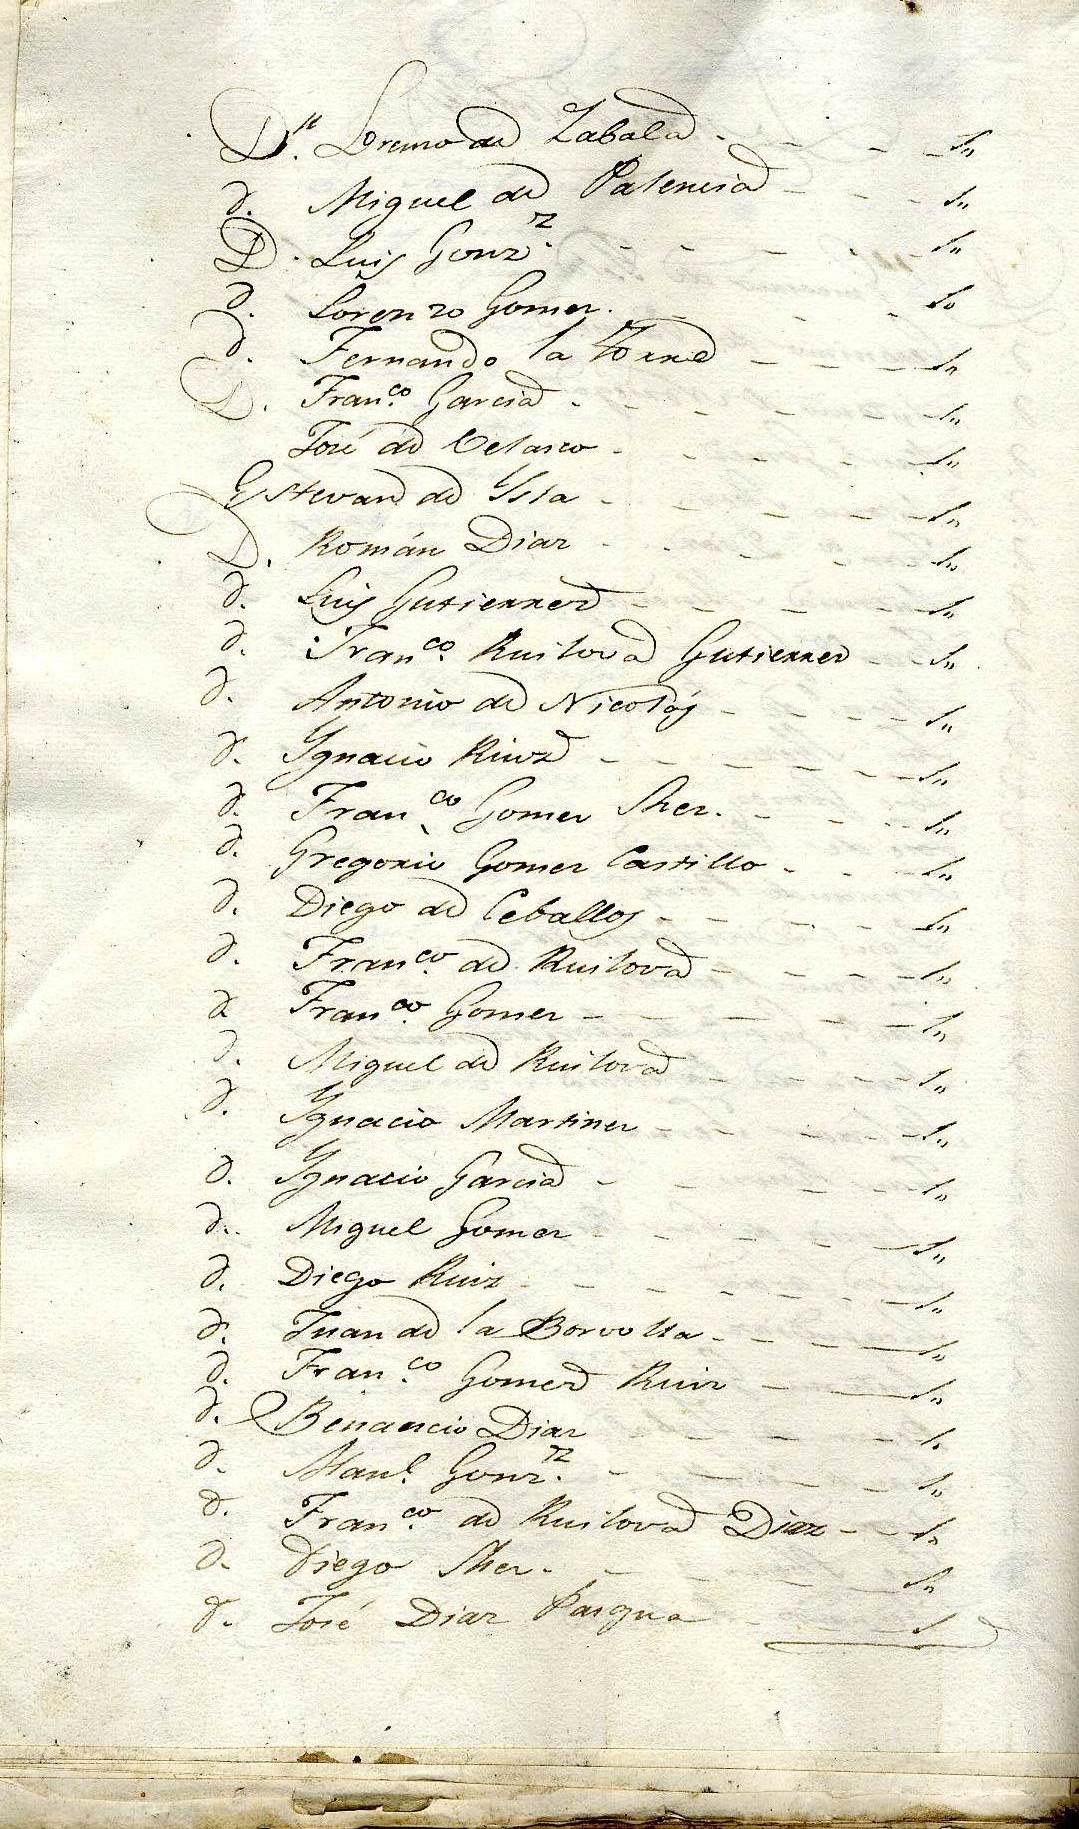 D.n Lorenzo de Zabala - - - 1,,
d. Miguel de Palencia - - - 1,,
D. Luis Gonz.z - - - - 1,,
d. Lorenzo Gomez. - - - 1,,
d. Fernando la Torre - - - - 1,,
D. Fran.co Garcia - - - - - 1,,
José de Velasco - - - - - 1,,
Estevan de Ysla - - - - - 1,,
D. Román Diaz - - - - - 1,,
d. Luis Gutierrez - - - - - 1,,
d. Fran.co Ruilova Gutierrez - - 1,,
d. Antonio de Nicolás - - - - - 1,,
d. Ygnacio Ruiz - - - - - - 1,,
d. Fran.co Gomez Shez. - - - - 1,,
d. Gregorio Gomez Castillo - - - 1,,
d. Diego de Ceballos - - - - - 1,,
d. Fran.co de Ruilova - - - - 1,,
d. Fran.co Gomez - - - - - 1,,
d. Miguel de Ruilova - - - - 1,,
d. Ygnacio Martinez - - - - - 1,,
d. Ygnacio Garcia - - - - - 1,,
d. Miguel Gomez - - - - - 1,,
d. Diego Ruiz - - - - - - 1,,
d. Juan de la - - - - 1,,
d. Fran.co Gomez Ruiz - - - 1,,
d. Benancio Diaz - - - - - 1.
d. Man.l Gonz.z - - - - - 1,,
d. Fran.co de Ruilova Diaz - - 1,,
d. Diego Shez. - - - - - 1,,
d. José Diaz Pasqua - - - 1